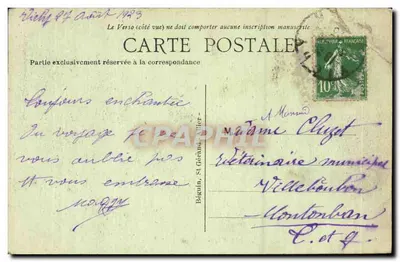 Vichy 27 Août 1923
Le Verso (côté vue) ne doit comporter aucune inscription manuscrite
CARTE POSTALE
Partie exclusivement réservée à la correspondance
Toujours enchantée
du voyage je ne
vous oublie pas
et vous embrasse
Magy
Béguin, St Gérand,
RÉPUBLIQUE FRANÇAISE
10
A Monsieur
Madame Cluzet
Vétérinaire municipal
Villebourbon
Montauban
T. et G.
CPAPHIL